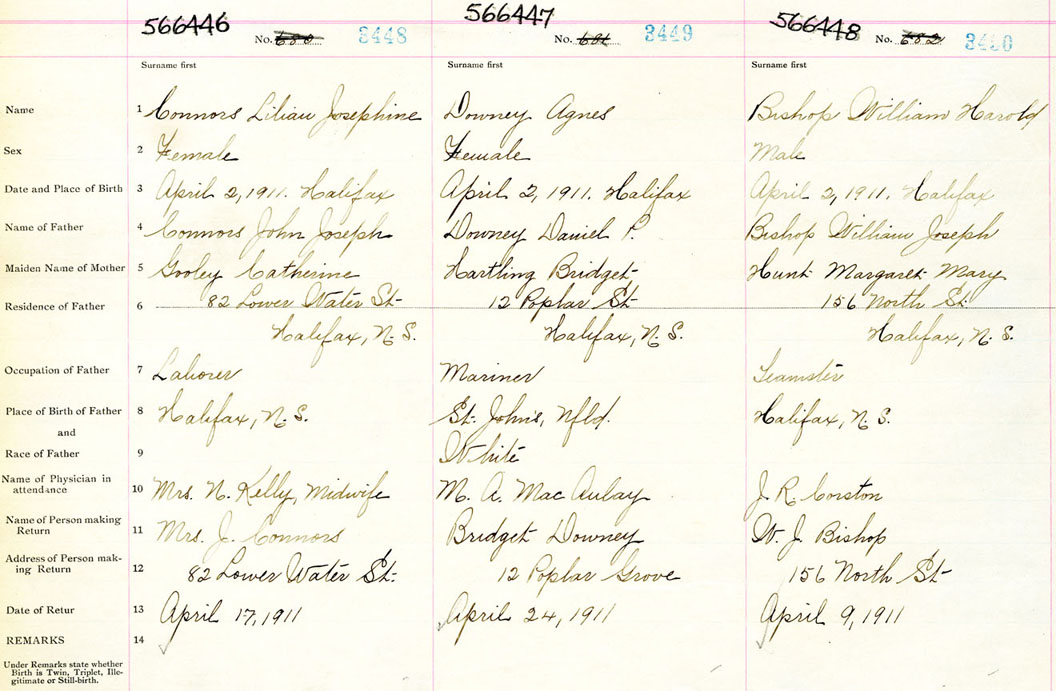 566446 566447 566448
No. 680 3448 No. 681 3449 No. 682 3450
Surname first Surname first Surname first
Name 1 Connors Lilian Josephine Downey Agnes Bishop William Harold
Sex 2 Female Female Male
Date and Place of Birth 3 April 2, 1911. Halifax April 2, 1911. Halifax April 2, 1911. Halifax
Name of Father 4 Connors John Joseph Downey Daniel P. Bishop William Joseph
Maiden Name of Mother 5 Gooley Catherine Hartling Bridget Hunt Margaret Mary
Residence of Father 6 82 Lower Water St. 12 Poplar St. 156 North St.
Halifax, N. S. Halifax, N. S. Halifax, N. S.
Occupation of Father 7 Laborer Mariner Teamster
Place of Birth of Father 8 Halifax, N. S. St. John's, Nfld. Halifax, N. S.
and
Race of Father 9 White
Name of Physician in
attendance 10 Mrs. N. Kelly, Midwife M. A. MacAulay J. R. Corston
Name of Person making
Return 11 Mrs. J. Connors Bridget Downey W. J. Bishop
Address of Person mak-
ing Return 12 82 Lower Water St. 12 Poplar Grove 156 North St.
Date of Retur 13 April 17, 1911 April 24, 1911 April 9, 1911
REMARKS 14
Under Remarks state whether
Birth is Twin, Triplet, Ille-
gitimate or Still-birth.